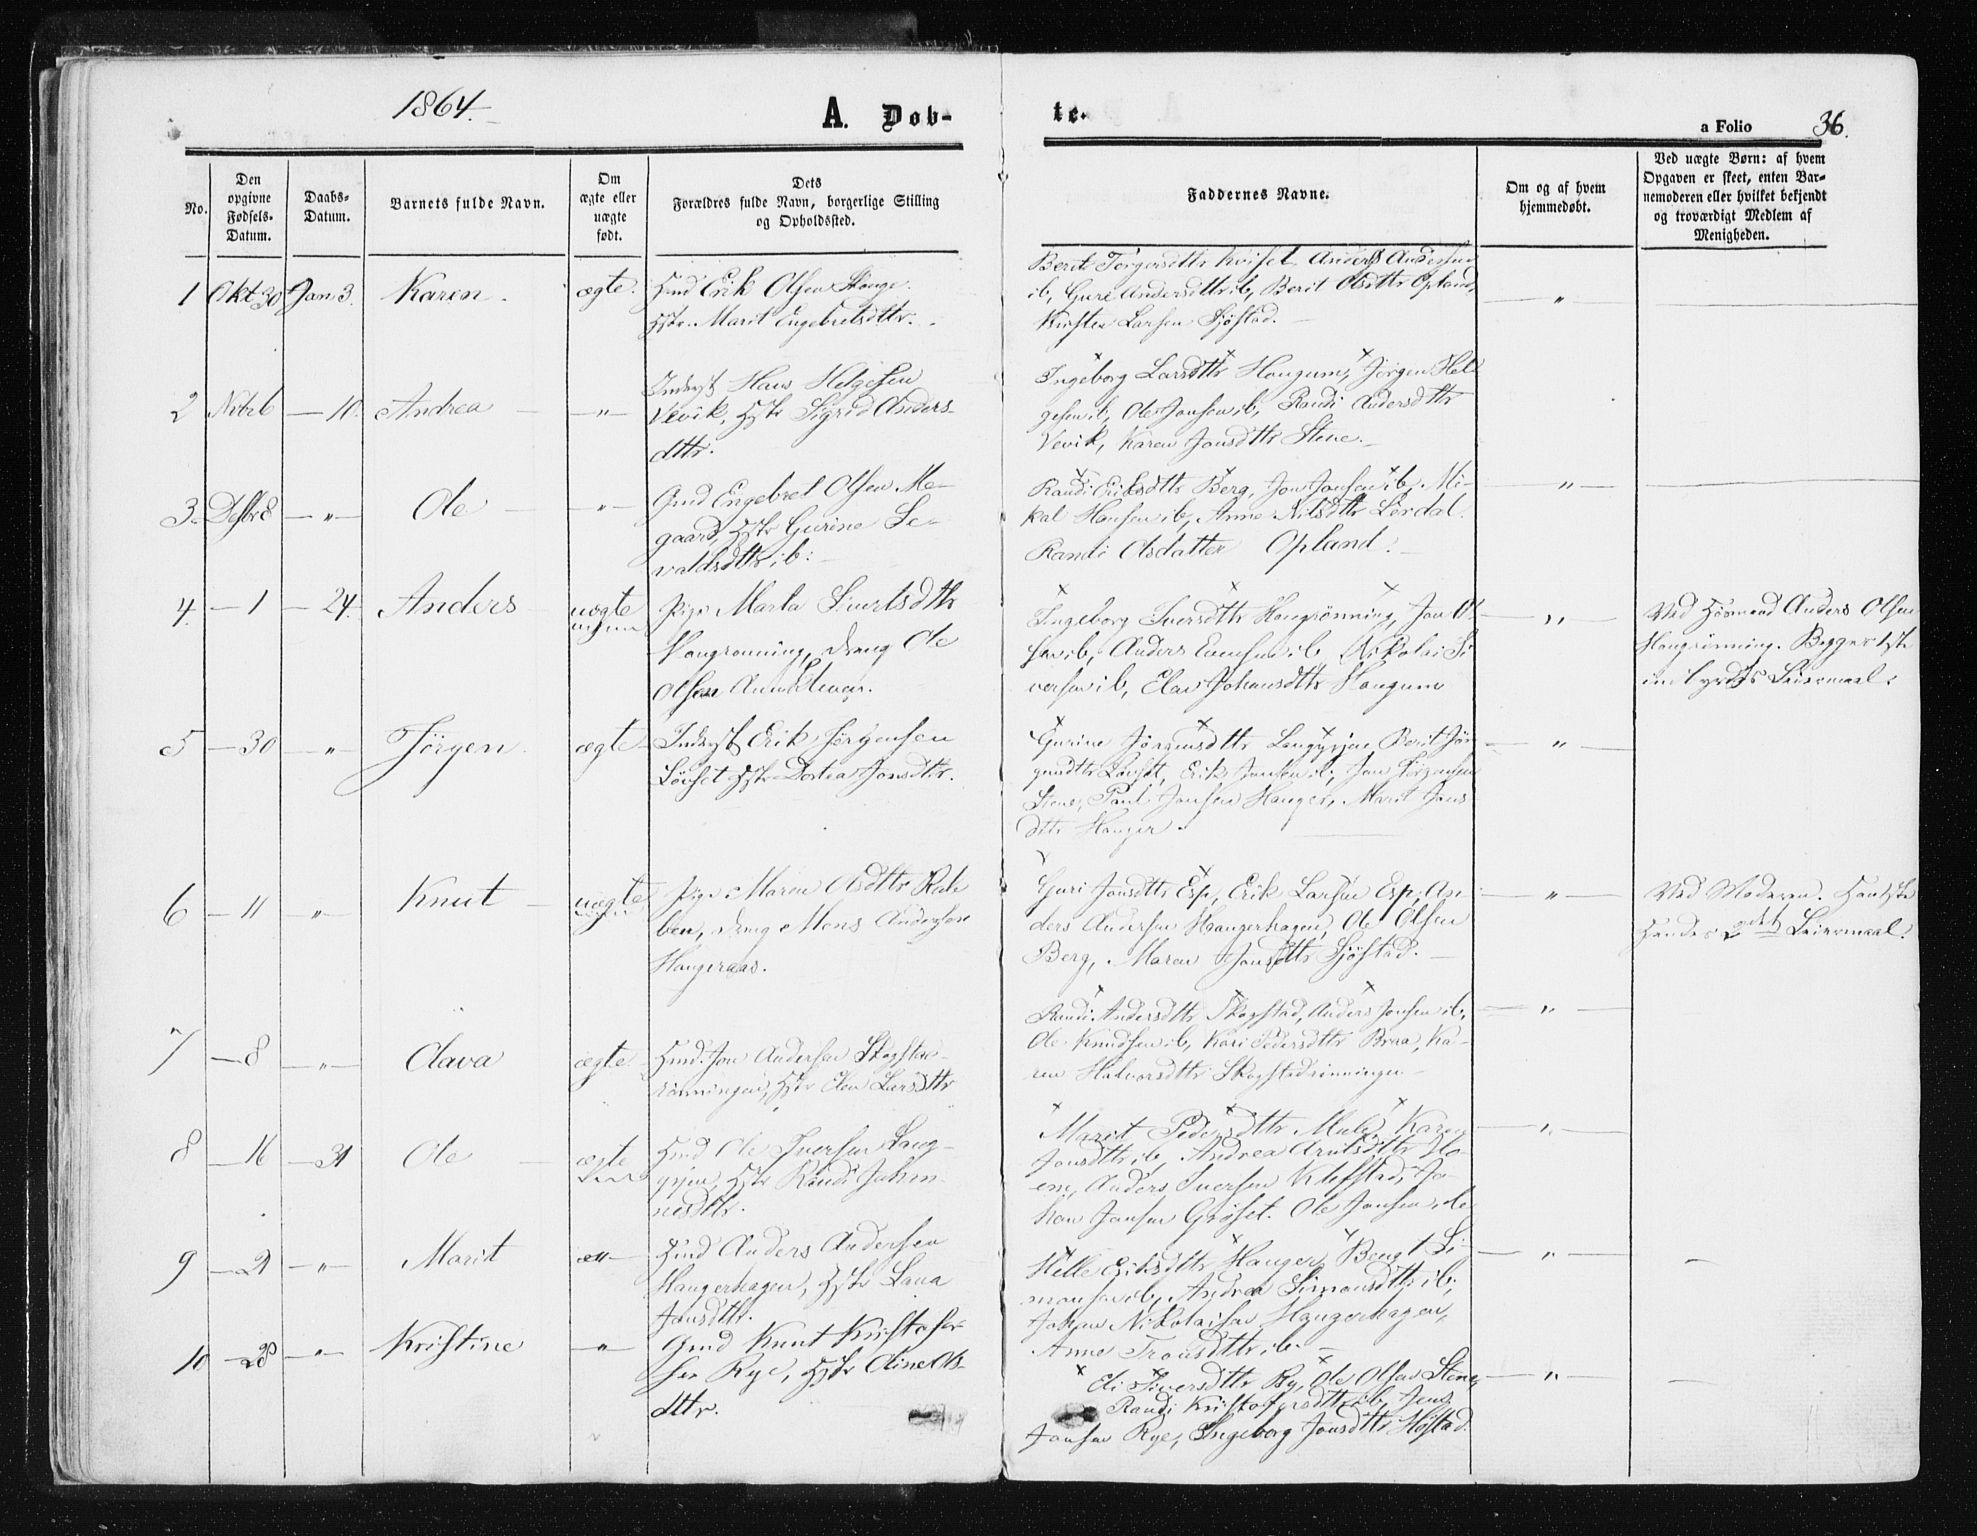 1864.
A. Dob-
te.
a Folio 36.
No.
Den opgivne Fødsels-Datum.
Daabs-Datum.
Barnets fulde Navn.
Om ægte eller uægte født.
Dets Forældres fulde Navn, borgerlige Stilling og Opholdssted.
Faddernes Navne.
Om og af hvem hjemmedøbt.
Ved uægte Børn: af hvem Opgaven er skeet, enten Barnemoderen eller hvilket bekjendt og troværdigt Medlem af Menigheden.
1 Okt 30 Jan 3. Karen. ægte
Erik Olsen
Marit Engebretsdttr.
Berit Andersen
ib, Guri Andersdttr ib, Berit Olsdttr Opland,
Larsen Sjøstad.
2 Nvbr 6 — 10. Andrea — „ —
Hans Helgesen
Vevik, Hstr Sigrid Anders-
dttr.
Ingeborg Larsdttr Haugum, Jørgen Hel
gesen ib, Ole Jonsen ib, Randi Andersdttr
Vevik, Karen Jonsdttr Stene.
3. Dsbr 8 — „ — Ole — „ —
Gmd Engebret Olsen Me-
gaard, Hstr Gurine Se-
valdsdttr ib.
Randi Eriksdttr Berg, Jon Jonsen ib, Mi-
kal Hansen ib, Anne Nilsdttr Lørdal.
Randi Olsdatter Opland.
4. — 1 — 24. Anders uægte
Pige Marta Sivertsdttr
Haugrønning, Dreng Ole
Olsen
Ingeborg Iversdttr Haugrønning, Jon Ol
sen ib, Anders Evensen ib, Nikolai Si
versen ib, Johansdttr Haugum
Ved Anders Olsen
Haugrønning. Begges 1ste
Leiermaal.
5 — 30 — „ — Jörgen. ægte
Indryst Erik Jörgensen
Löuset Hstr Dortea Jonsdttr.
Gurine Jörgensdttr Berit Jör
gensdttr Löuset, Erik Jonsen ib, Jon Jörgensen
Stene, Paul Jonsen Hauger, Marit Jons
dttr Hauger.
6 — 11 — „ — Knut uægte
Pige Maren Olsdttr
Dreng Mons Andersen
Haugeraas.
Guri Jonsdttr Esp, Erik Larsen Esp, An
ders Andersen Haugerhagen, Ole Olsen
Berg, Maren Jonsdttr Sjöstad.
Ved Moderen. Hans 1ste
Hendes 2det Leiermaal.
7 — 8 — „ — Olava ægte
Hmd. Jon Andersen Skogstad-
rönningen, Hstr Larsdttr
Randi Andersdttr Skogstad, Anders Jonsen ib,
Ole Knudsen ib, Kari Pedersdttr Braa, Ka-
ren Halvorsdttr Skogstadrönningen
8 — 16 — 31 Ole — ægte
Hmd Ole Iversen
Hstr Randi Johan-
nesdttr.
Marit Pedersdttr Mule, Karen
Jonsdttr ib, Andrea Arntsdttr Mo-
en, Anders Iversen Kleffstad, Jo-
han Jansen Grøset. Ole Jonsen
9 — 21 — „ — Marit
Hmd Anders Andersen
Haugerhagen, Hstr
Jonsdttr.
Eriksdttr Hauger, Bengt Si-
monsen ib, Andrea Simonsdttr ib,
Nikolaisen Haugerhagen,
Anne Tronsdttr ib.
10 — 28 — „ — Kristine — „ —
Gmd Knut Kristofer-
sen Rye, Hstr Oline Ols-
dttr.
Eli Siversdttr Ry, Ole Olsen Stene,
Randi Kristofersdttr ib, Jens
Jonsen Rye, Ingeborg Jonsdttr